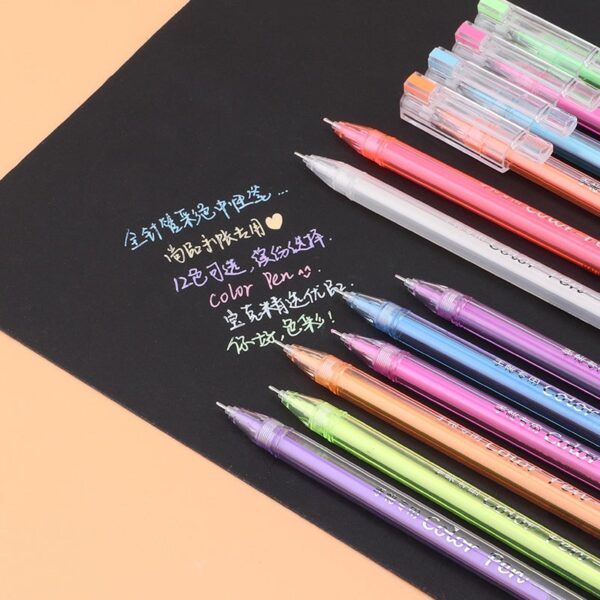 全针管彩色中性笔...
尚品手账专用
12色可选,缤纷选择.
Color Pen
宝克精选优品.
你好,色彩!
Color Pen
Color Pen
Color
Color
Color Pen
Color Pen
手账专用 Color Pen